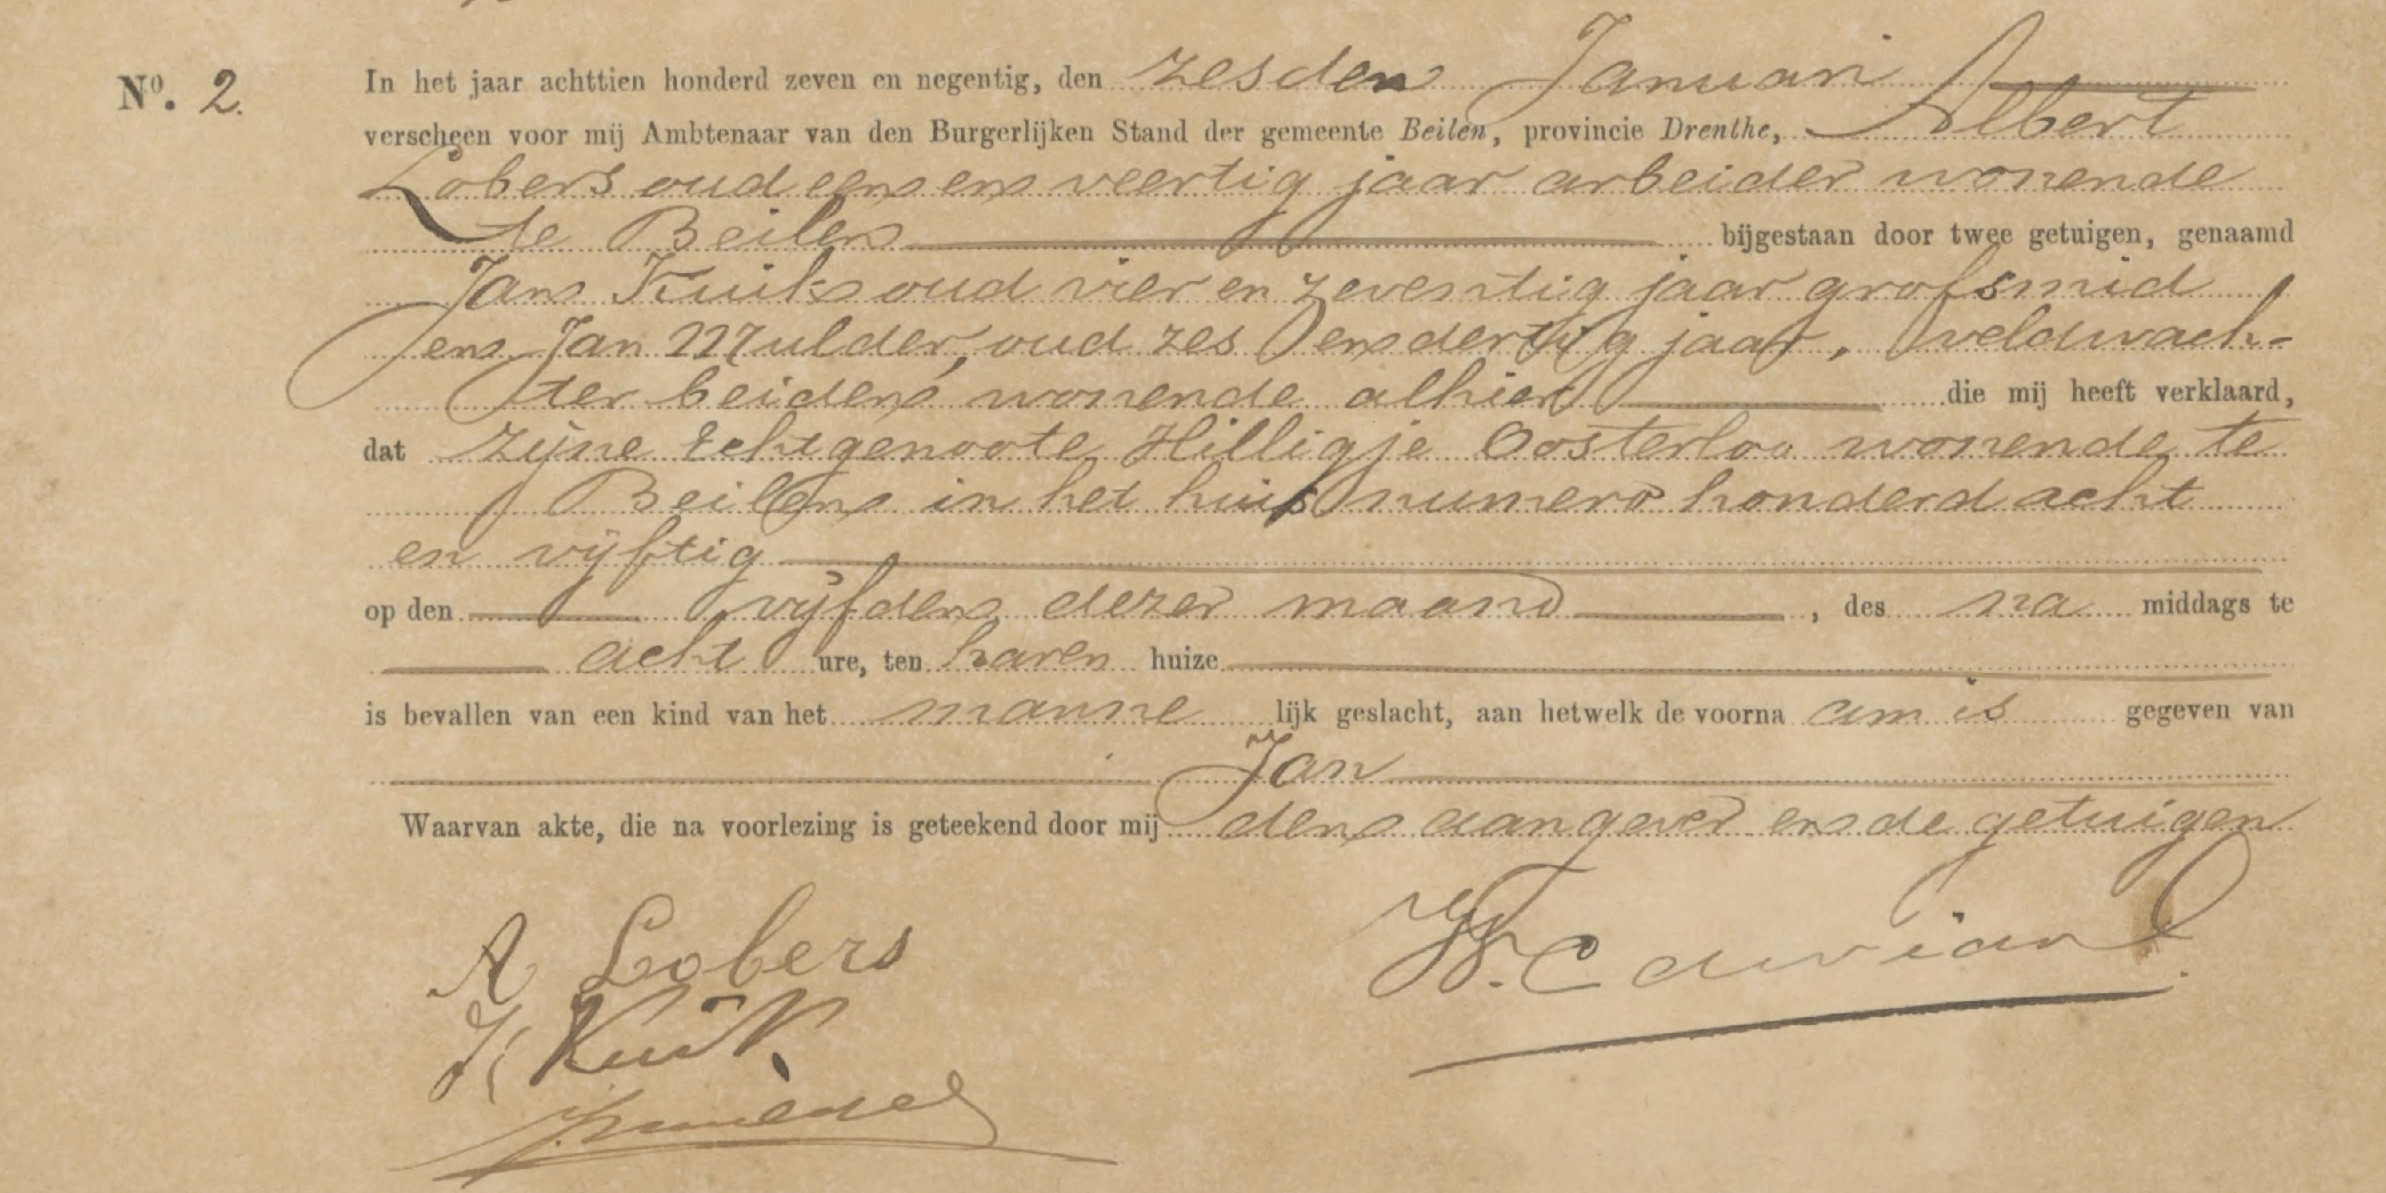 No. 2.
In het jaar achttien honderd zeven en negentig, den zesden Januari
verscheen voor mij Ambtenaar van den Burgerlijken Stand der gemeente Beilen, provincie Drenthe, Albert
Lobers oud een en veertig jaar arbeider wonende
te Beilen bijgestaan door twee getuigen, genaamd
Jan Kuik oud vier en zeventig jaar grofsmid
en Jan Mulder, oud zes en dertig jaar, veldwach-
ter beiden wonende alhier die mij heeft verklaard,
dat zijne Echtgenoote Hilligje Oosterloo wonende te
Beilen in het huis numero honderd acht
en vijftig
op den vijfden dezer maand, des na middags te
acht ure, ten haren huize
is bevallen van een kind van het manne lijk geslacht, aan hetwelk de voorna am is gegeven van
Jan
Waarvan akte, die na voorlezing is geteekend door mij den aangever en de getuigen
A Lobers
J Kuik